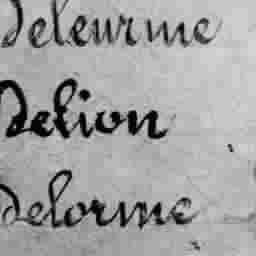 Deleurme
Delion
Delorme